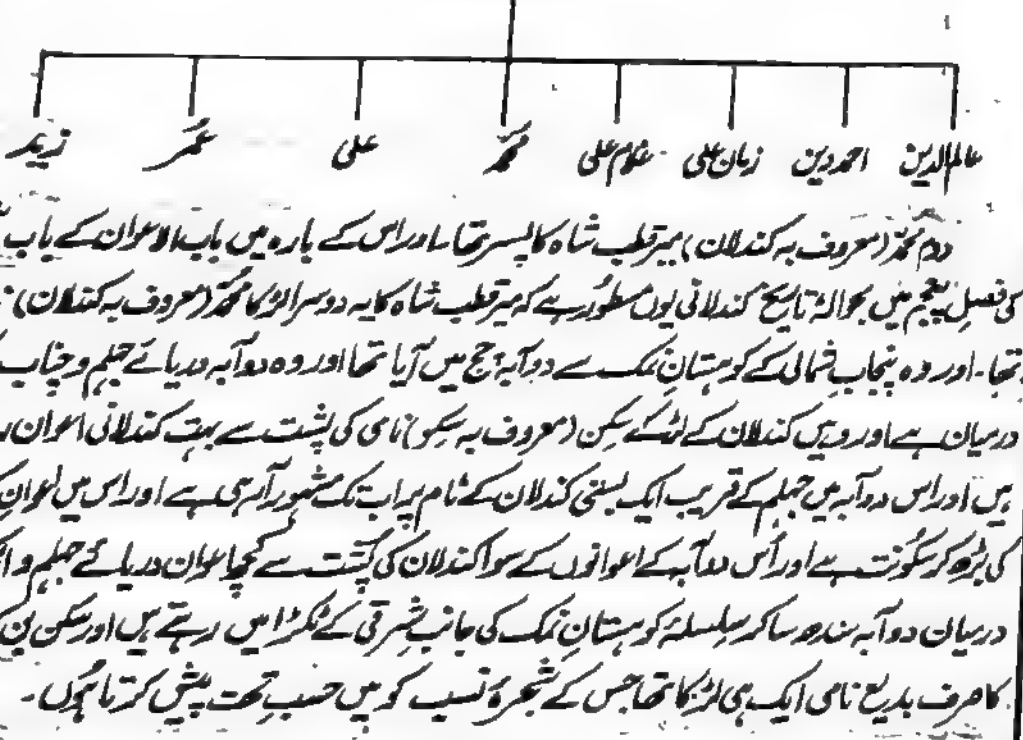 عالم الدین احمد دین زمان علی غلام علی محمد علی عمر زبیر
دوم محمد (معروف بہ کندلان) میر قطب شاہ کا پسر تھا۔ اور اس کے بارہ میں باب الاعوان کے باب
کی فصلِ پنجم میں بحوالۂ تاریخ کندلانی یوں مسطور ہے کہ میر قطب شاہ کا یہ دوسرا لڑکا محمد (معروف بہ کندلان)
تھا۔ اور وہ پنجاب شمالی کے کوہستانِ نمک سے دوآبۂ جج میں آیا تھا اور وہ دوآبہ دریائے جہلم و چناب
درمیان ہے اور وہیں کندلان کے لڑکے سکن (معروف بہ سکو) نامی کی پشت سے بہت کندلانی اعوان
ہیں اور اس دوآبہ میں جہلم کے قریب ایک بستی کندلان کے نام پر اب تک مشہور آ رہی ہے اور اس میں اعوانِ
کی بڑھ کر سکونت ہے اور اُس دوآبہ کے اعوانوں کے سوا کندلان کی پشت سے کچھ اعوان دریائے جہلم و
درمیان دوآبہ سندھ ساگر سلسلۂ کوہستانِ نمک کی جانبِ شرقی کے ٹکڑا میں رہتے ہیں اور سکن بن
کا صرف بدیع نامی ایک ہی لڑکا تھا جس کے شجرۂ نسب کو میں حسبِ تحت پیش کرتا ہوں۔